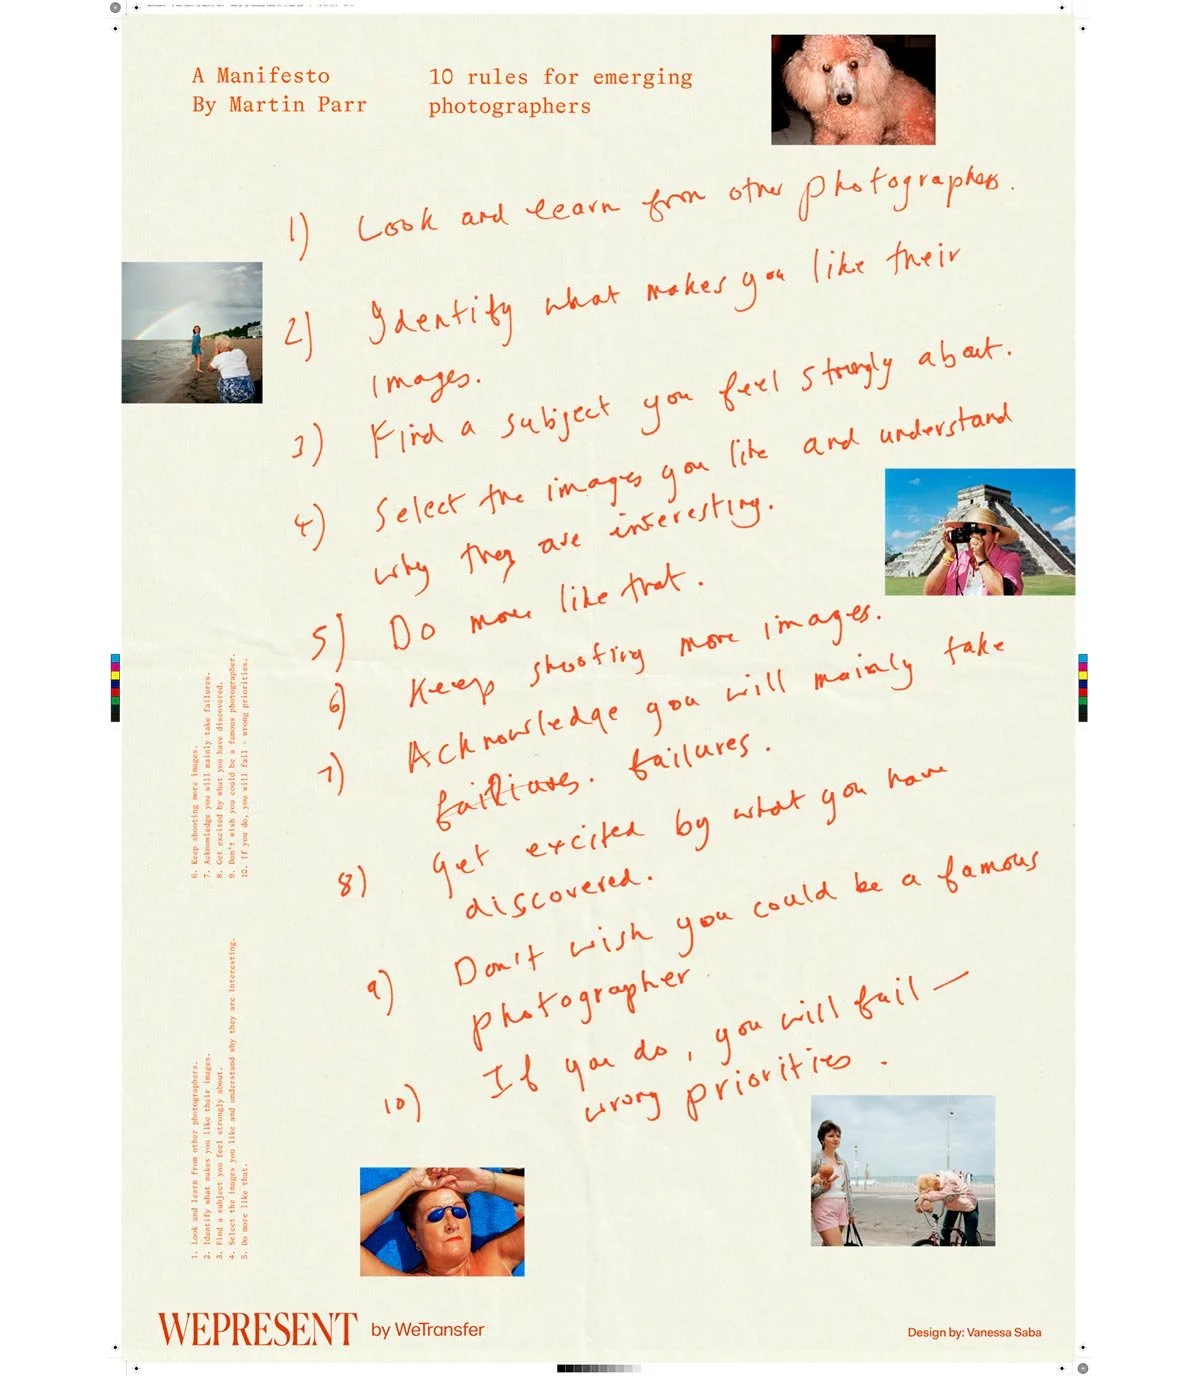 A Manifesto
By Martin Parr
10 rules for emerging
photographers
1) Look and learn from other photographers.
2) Identify what makes you like their
images.
3) Find a subject you feel strongly about.
4) Select the images you like and understand
why they are interesting.
5) Do more like that.
6) Keep shooting more images.
7) Acknowledge you will mainly take
failures.
8) Get excited by what you have
discovered.
9) Don't wish you could be a famous
photographer
10) If you do, you will fail —
wrong priorities.
1. Look and learn from other photographers.
2. Identify what makes you like their images.
3. Find a subject you feel strongly about.
4. Select the images you like and understand why they are interesting.
5. Do more like that.
6. Keep shooting more images.
7. Acknowledge you will mainly take failures.
8. Get excited by what you have discovered.
9. Don't wish you could be a famous photographer.
10. If you do, you will fail - wrong priorities.
WEPRESENT by WeTransfer
Design by: Vanessa Saba